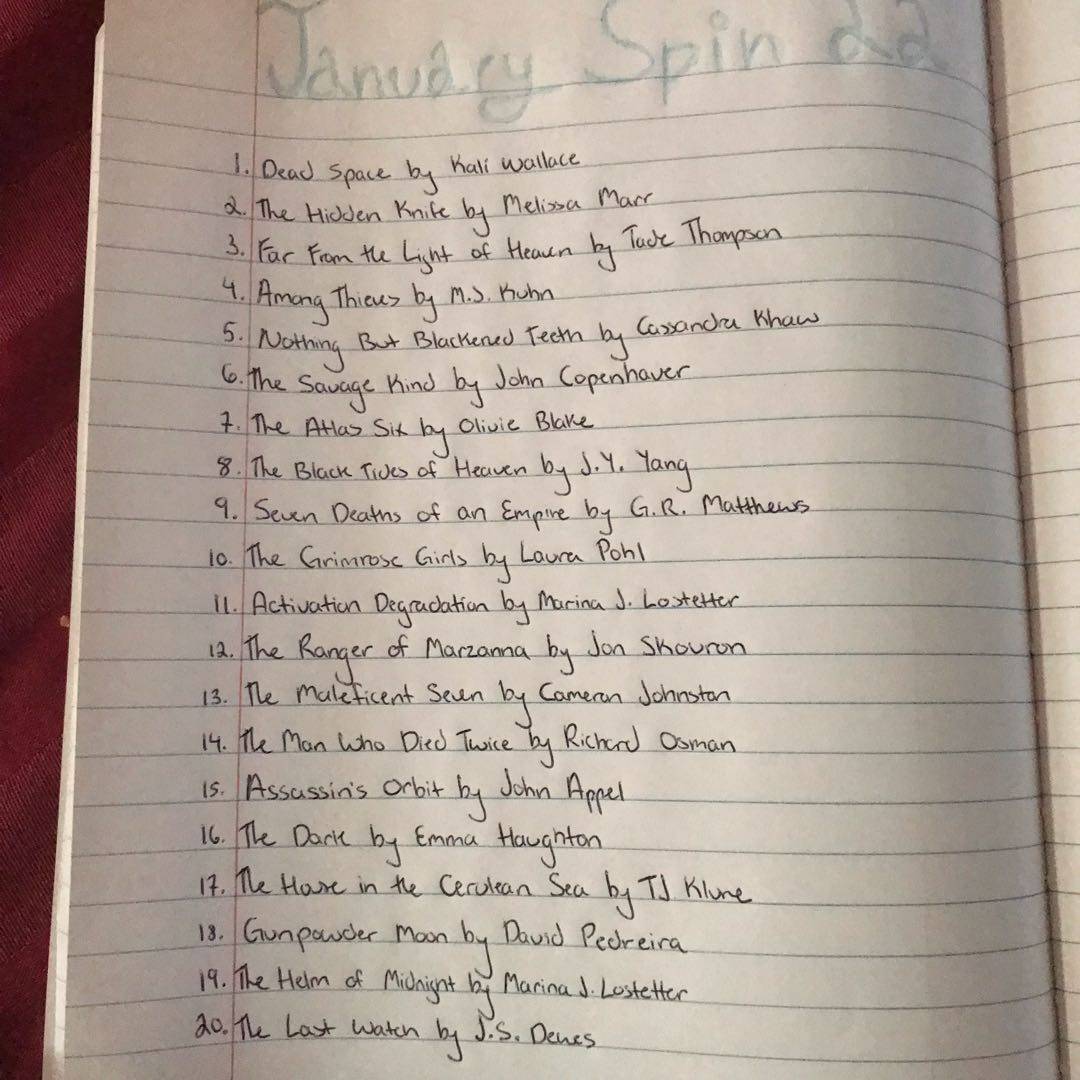 January Spin 22
1. Dead Space by Kali Wallace
2. The Hidden Knife by Melissa Marr
3. Far From the Light of Heaven by Tade Thompson
4. Among Thieves by M.J. Kuhn
5. Nothing But Blackened Teeth by Cassandra Khaw
6. The Savage Kind by John Copenhaver
7. The Atlas Six by Olivie Blake
8. The Black Tides of Heaven by J.Y. Yang
9. Seven Deaths of an Empire by G.R. Matthews
10. The Grimrose Girls by Laura Pohl
11. Activation Degradation by Marina J. Lostetter
12. The Ranger of Marzanna by Jon Skovron
13. The Maleficent Seven by Cameron Johnston
14. The Man Who Died Twice by Richard Osman
15. Assassin's Orbit by John Appel
16. The Dark by Emma Haughton
17. The House in the Cerulean Sea by TJ Klune
18. Gunpowder Moon by David Pedreira
19. The Helm of Midnight by Marina J. Lostetter
20. The Last Watch by J.S. Dewes